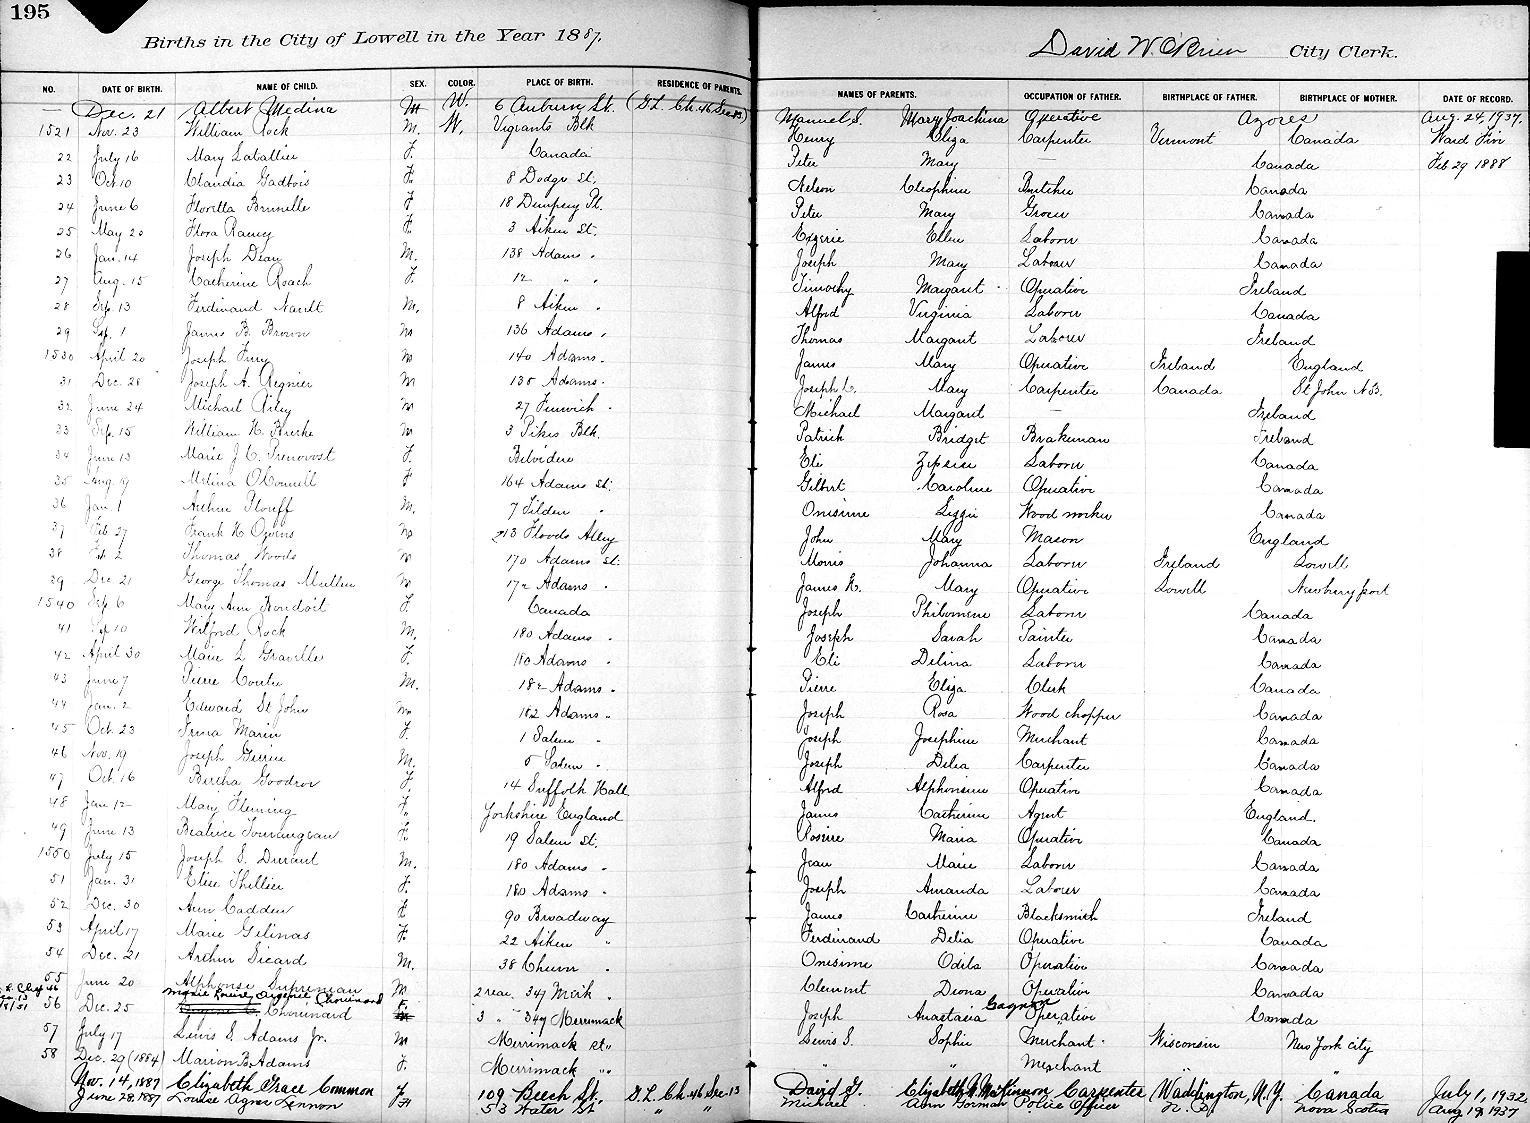 195
Births in the City of Lowell in the Year 1887.
David W. O'Brien City Clerk.
NO. DATE OF BIRTH. NAME OF CHILD. SEX. COLOR. PLACE OF BIRTH. RESIDENCE OF PARENTS. NAMES OF PARENTS. OCCUPATION OF FATHER. BIRTHPLACE OF FATHER. BIRTHPLACE OF MOTHER. DATE OF RECORD.
— Dec. 21 Albert Medina M W. 6 Auburn St. (G.L. Ch. 46 Sec. 13) Manuel S. Mary Joachina Operative Azores Aug. 24, 1937.
1521 Nov. 23 William Rock M. W. Vigeants Blk Henry Eliza Carpenter Vermont Canada Ward Five
22 July 16 Mary Laballier F. Canada Peter Mary — Canada Feb 29 1888
23 Oct 10 Claudia Gadbois F. 8 Dodge St. Nelson Cleophine Butcher Canada
24 June 6 Florilla Brunelle F 18 Dempsey Pl. Peter Mary Grocer Canada
25 May 20 Flora Ramey F. 3 Aiken St. Ellen Laborer Canada
26 Jan. 14 Joseph Dean M. 138 Adams " Joseph Mary Laborer Canada
27 Aug. 15 Catherine Roach F. 12 " " Timothy Margaret Operative Ireland
28 Sep. 13 Ferdinand M. 8 Aiken " Alfred Virginia Laborer Canada
29 Sep. 1 James B. Brown M 136 Adams " Thomas Margaret Laborer Ireland
1530 April 20 Joseph M 140 Adams " James Mary Operative Ireland England
31 Dec. 28 Joseph A. Regnier M 135 Adams " Joseph L. Mary Carpenter Canada St John N.B.
32 June 24 Michael Riley M 27 Fenwick " Michael Margaret — Ireland
33 Sep. 15 William H. Burke M 3 Pikes Blk. Patrick Bridget Brakeman Ireland
34 June 13 Marie J. C. Prenovost F. Belvidere Eli Laborer Canada
35 Aug 19 Melina O'Connell F 164 Adams St. Gilbert Caroline Operative Canada
36 Jan. 1 Arthur Plouff M. 7 Tilden " Onisime Lizzie Wood worker Canada
37 Feb 27 Frank H. Owens M 213 Floods Alley John Mary Mason England
38 Feb 2 Thomas Woods M 170 Adams St. Morris Johanna Laborer Ireland Lowell
39 Dec 21 George Thomas Mullen M 172 Adams " James H. Mary Operative Lowell Newburyport
1540 Sep 6 Mary Ann F. Canada Joseph Philomene Laborer Canada
41 Sep 10 Wilford Rock M. 180 Adams " Joseph Sarah Painter Canada
42 April 30 Marie L Graville F. 180 Adams " Eli Delina Laborer Canada
43 June 7 Pierre M. 182 Adams " Pierre Eliza Clerk Canada
44 Jan. 2 Edward St John M 182 Adams " Joseph Rosa Wood chopper Canada
45 Oct. 23 Marin F. 1 Salem " Joseph Josephine Merchant Canada
46 Nov. 19 Joseph M. 5 Salem " Joseph Delia Carpenter Canada
47 Oct. 16 Bertha Goodrow F. 14 Suffolk Hall Alfred Alphonsine Operative Canada
48 Jan 12 Mary Fleming F. Yorkshire England James Catherine Agent England.
49 June 13 Beatrice Tourangeau F. 19 Salem St. Rosire Maria Operative Canada
1550 July 15 Joseph S. Durant M. 180 Adams " Jean Marie Laborer Canada
51 Jan. 31 Elise Thellier F. 180 Adams " Joseph Amanda Laborer Canada
52 Dec. 30 Ann Cadden F. 90 Broadway James Catherine Blacksmith Ireland
53 April 17 Marie Gelinas F. 22 Aiken " Ferdinand Delia Operative Canada
54 Dec. 21 Arthur Sicard M. 38 Cheever " Onisime Odila Operative Canada
55 June 20 Alphonse Suprenian M 2 rear 347 Merk " Clement Diona Operative Canada
Marie Louise Chouinard
56 Dec. 25 Chouinard F. 3 " 347 Merrimack Joseph Anastasia Gagnon Operative Canada
57 July 17 Lewis S. Adams Jr. M Merrimack St. Lewis S. Sophie Merchant Wisconsin New York City
58 Dec. 29 (1884) Marion B. Adams F. Merrimack " " " Merchant " "
Nov. 14, 1887 Elizabeth Grace Common F 109 Beech St. G.L. Ch. 46 Sec. 13 David G. Elizabeth A. McKinnon Carpenter Waddington, N.Y. Canada July 1, 1932.
June 28, 1887 Louise Agnes Lennon F 53 Water St " " Michael Ann Gorman Police Officer N. B. Nova Scotia Aug 19, 1937